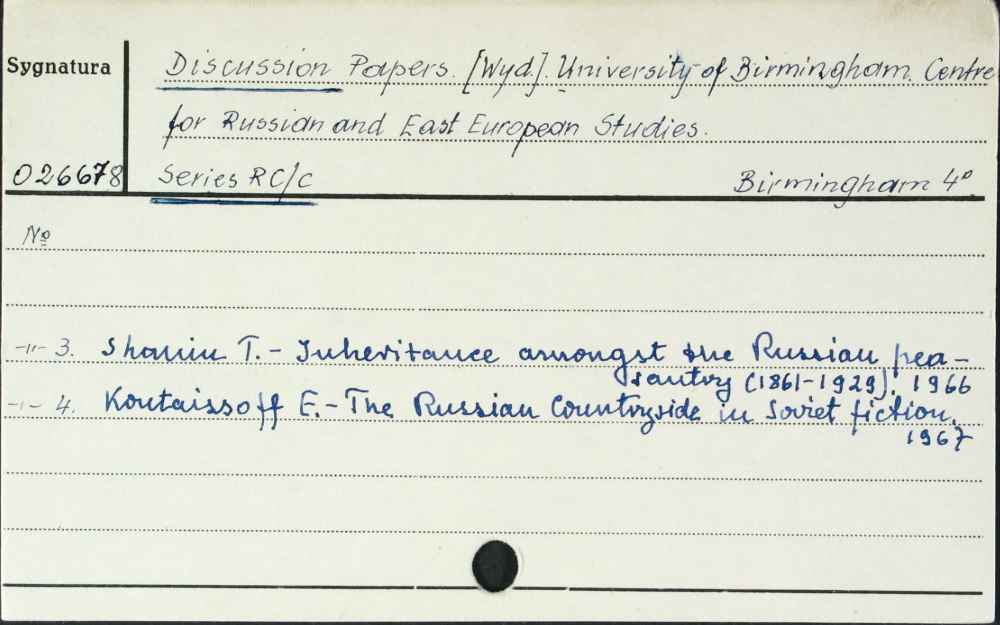 Sygnatura
Discussion Papers. [Wyd.]. University of Birmingham. Centre
for Russian and East European Studies.
026678
Series RC/C
Birmingham 4°
№
-"- 3. Shanin T. - Inheritance amongst the Russian pea-
santry (1861-1929). 1966
-"- 4. Koutaissoff E. - The Russian Countryside in Soviet fiction.
1967